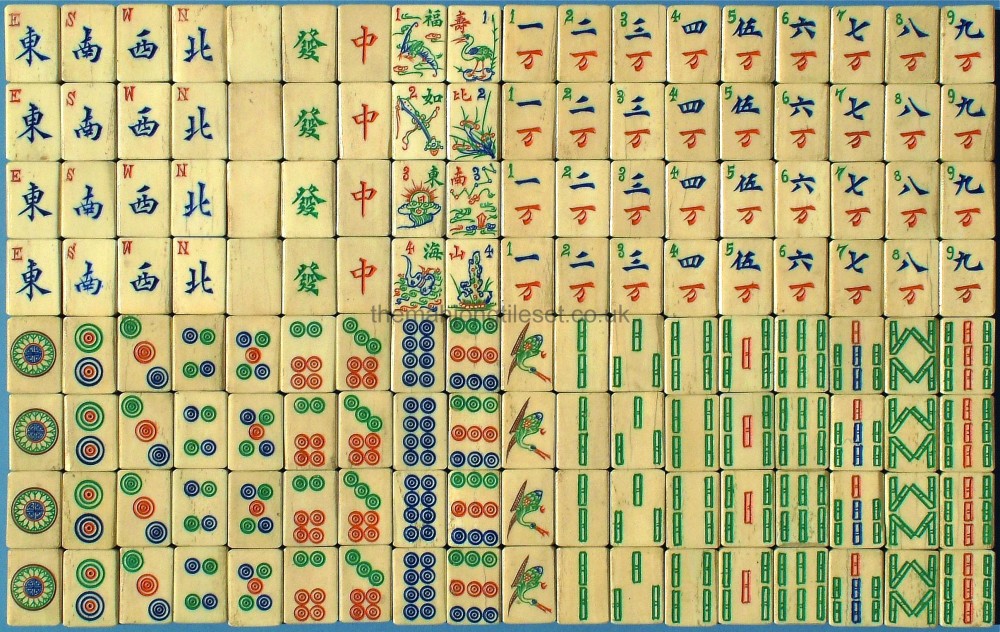 E 東 S 南 W 西 N 北 發 中 1 福 壽 1 1 一万 2 二万 3 三万 4 四万 5 伍万 6 六万 7 七万 8 八万 9 九万
E 東 S 南 W 西 N 北 發 中 2 如 比 2 1 一万 2 二万 3 三万 4 四万 5 伍万 6 六万 7 七万 8 八万 9 九万
E 東 S 南 W 西 N 北 發 中 3 東 南 3 1 一万 2 二万 3 三万 4 四万 5 伍万 6 六万 7 七万 8 八万 9 九万
E 東 S 南 W 西 N 北 發 中 4 海 山 4 1 一万 2 二万 3 三万 4 四万 5 伍万 6 六万 7 七万 8 八万 9 九万
themahjongtileset.co.uk